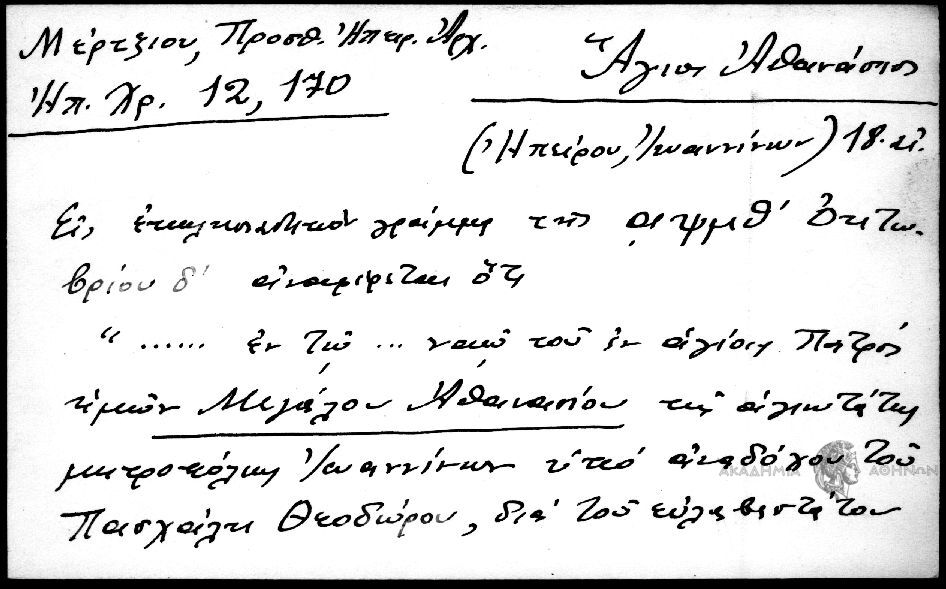 Μέρτζιου, Προσθ. Ἠπειρ. Ἀρχ.
Ἠπ. Χρ. 12, 170
Ἅγιος Ἀθανάσιος
(Ἠπείρου, Ἰωαννίνων) 18. αἰ.
Εἰς ἐκκλησιαστικὸν γράμμα τῆς ͵αψμθ' Ὀκτω-
βρίου δ' ἀναφέρεται ὅτι
"...... ἐν τῷ ... ναῷ τοῦ ἐν ἁγίοις Πατρός
ἡμῶν Μεγάλου Ἀθανασίου τῆς ἁγιωτάτης
μητροπόλεως Ἰωαννίνων ὑπό ἀναδόχου τοῦ
Πασχάλη Θεοδώρου, διά τοῦ εὐλαβεστάτου
ΑΚΑΔΗΜΙΑ ΑΘΗΝΩΝ